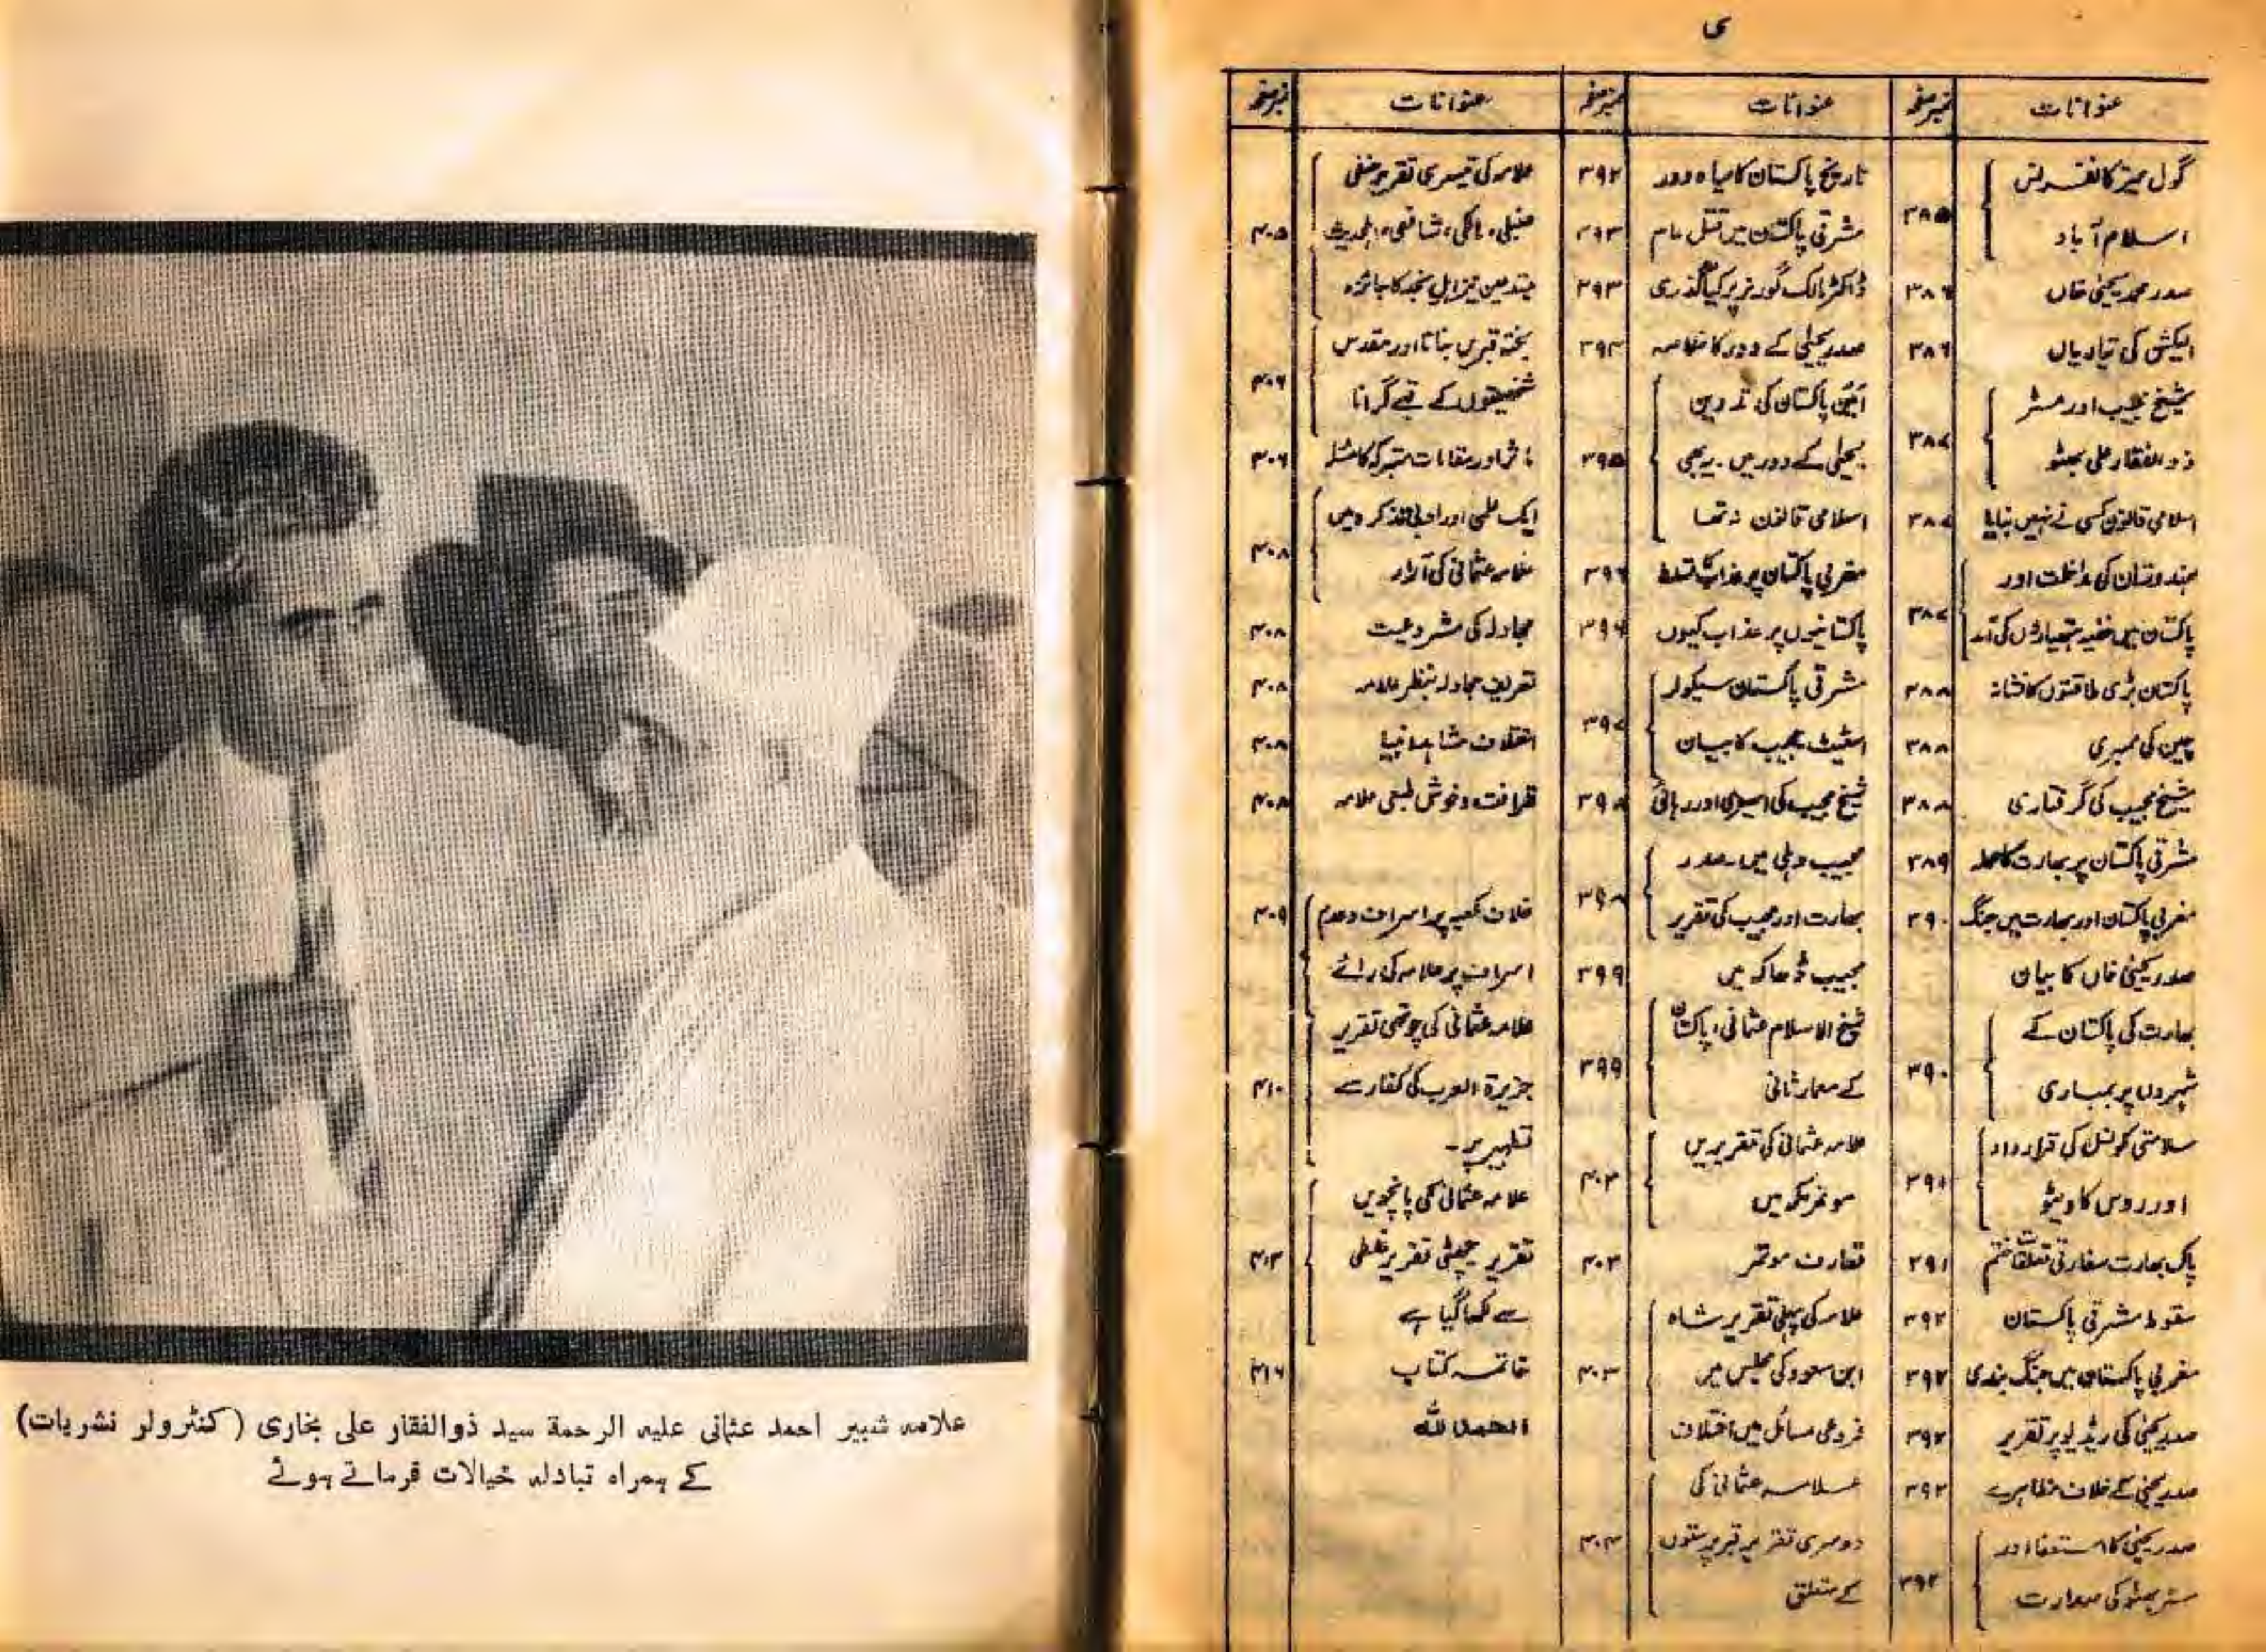 ی
عنوانات
نمبر صفحہ
عنوانات
نمبر صفحہ
عنوانات
نمبر صفحہ
گول میز کانفرنس
اسلام آباد
۳۸۵
صدر محمد یحییٰ خاں
۳۸۶
الیکشن کی تیاریاں
۳۸۶
شیخ مجیب اور مسٹر
ذوالفقار علی بھٹو
۳۸۷
اسلامی قانون کسی نے نہیں بنایا
۳۸۷
ہندوستان کی مداخلت اور
پاکستان میں خفیہ ہتھیاروں کی آمد
۳۸۷
پاکستان بڑی طاقتوں کا نشانہ
۳۸۸
چین کی ممبری
۳۸۸
شیخ مجیب کی گرفتاری
۳۸۸
مشرقی پاکستان پر بھارت کا حملہ
۳۸۹
مغربی پاکستان اور بھارت میں جنگ
۳۹۰
صدر یحییٰ خاں کا بیان
بھارت کی پاکستان کے
شہروں پر بمباری
۳۹۰
سلامتی کونسل کی قرارداد
اور روس کا ویٹو
۳۹۱
پاک بھارت سفارتی تعلقات ختم
۳۹۱
سقوط مشرقی پاکستان
۳۹۲
مغربی پاکستان میں جنگ بندی
۳۹۲
صدر یحییٰ کی ریڈیو پر تقریر
۳۹۲
صدر یحییٰ کے خلاف مظاہرے
۳۹۲
صدر یحییٰ کا استعفا اور
مسٹر بھٹو کی صدارت
۳۹۲
تاریخ پاکستان کا سیاہ دور
۳۹۲
مشرقی پاکستان میں قتل عام
۳۹۳
ڈاکٹر مالک گورنر پر کیا گذری
۳۹۳
صدر یحییٰ کے دور کا خلاصہ
۳۹۴
آئین پاکستان کی تدوین
یحییٰ کے دور میں۔ یہ بھی
اسلامی قانون نہ تھا
۳۹۵
مغربی پاکستان پر عذاب کا تسلط
۳۹۶
پاکستانیوں پر عذاب کیوں
۳۹۶
مشرقی پاکستان سیکولر
اسٹیٹ مجیب کا بیان
۳۹۷
شیخ مجیب کی اسیری اور رہائی
۳۹۸
مجیب دہلی میں۔ صدر
بھارت اور مجیب کی تقریر
۳۹۸
مجیب ڈھاکہ میں
۳۹۹
شیخ الاسلام عثمانی، پاکستان
کے معمار ثانی
۳۹۹
علامہ عثمانی کی تقریریں
موتمر مکہ میں
۴۰۲
تعارف موتمر
۴۰۲
علامہ کی پہلی تقریر شاہ
ابن سعود کی مجلس میں
فروعی مسائل میں اختلاف
۴۰۳
علامہ عثمانی کی
دوسری تقریر قبر پرستوں
کے متعلق
۴۰۴
علامہ کی تیسری تقریر حنفی
حنبلی، مالکی، شافعی، اہلحدیث
مبتدعین نیز اہل نجد کا جائزہ
۴۰۵
پختہ قبریں بنانا اور مقدس
شخصیتوں کے قبے گرانا
۴۰۶
مآثر اور مقامات متبرکہ کا مسئلہ
۴۰۶
ایک علمی اور ادبی تذکرہ میں
علامہ عثمانی کی آراء
۴۰۸
مجادلہ کی مشروعیت
۴۰۸
تعریف مجادلہ بنظر علامہ
۴۰۸
اختلاف مشاہد انبیا
۴۰۸
ظرافت و خوش طبعی علامہ
۴۰۸
غلاف کعبہ پر اسراف و عدم
اسراف پر علامہ کی رائے
۴۰۹
علامہ عثمانی کی چوتھی تقریر
جزیرۃ العرب کی کفار سے
تطہیر پر۔
۴۱۰
علامہ عثمانی کی پانچویں
تقریر چھٹی تقریر غلطی
سے لکھا گیا ہے
خاتمہ کتاب
۴۱۶
الحمد للہ
علامہ شبیر احمد عثمانی علیہ الرحمۃ سید ذوالفقار علی بخاری (کنٹرولر نشریات)
کے ہمراہ تبادلہ خیالات فرماتے ہوئے